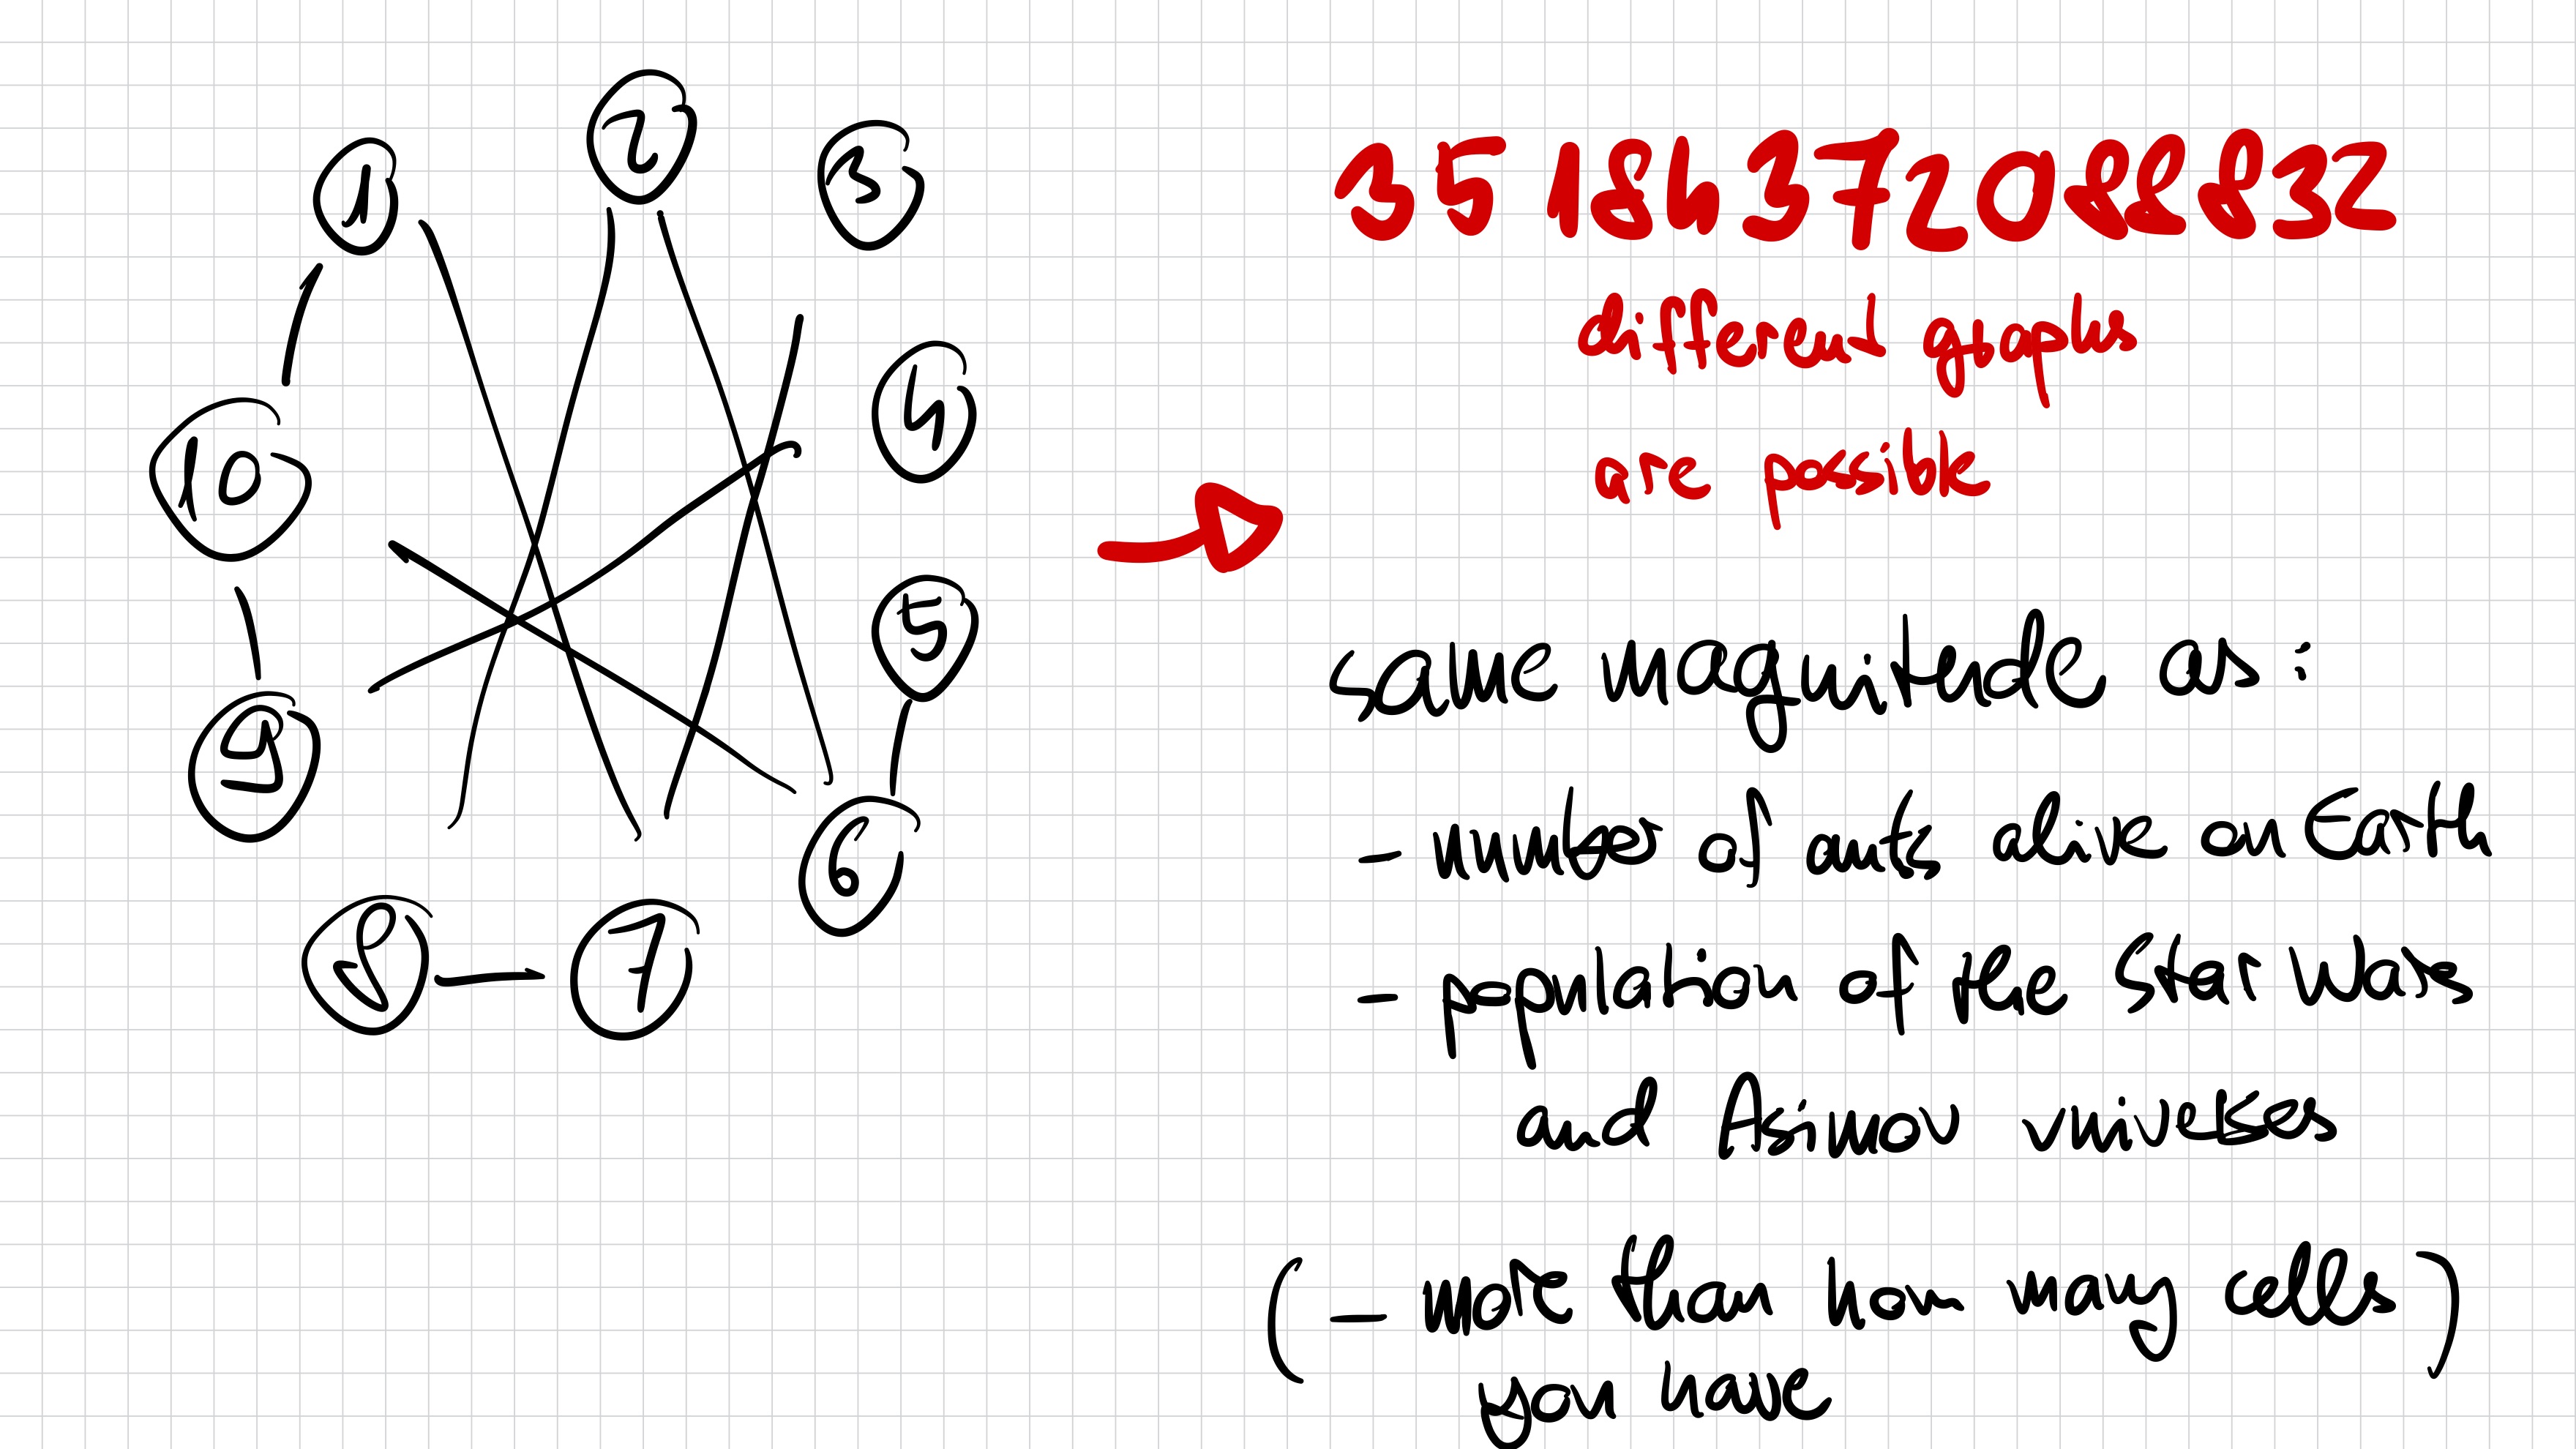 1
2
3
4
5
6
7
8
9
10
35184372088832
different graphs
are possible
same magnitude as:
- number of ants alive on Earth
- population of the Star Wars
and Asimov universes
(- more than how many cells)
you have